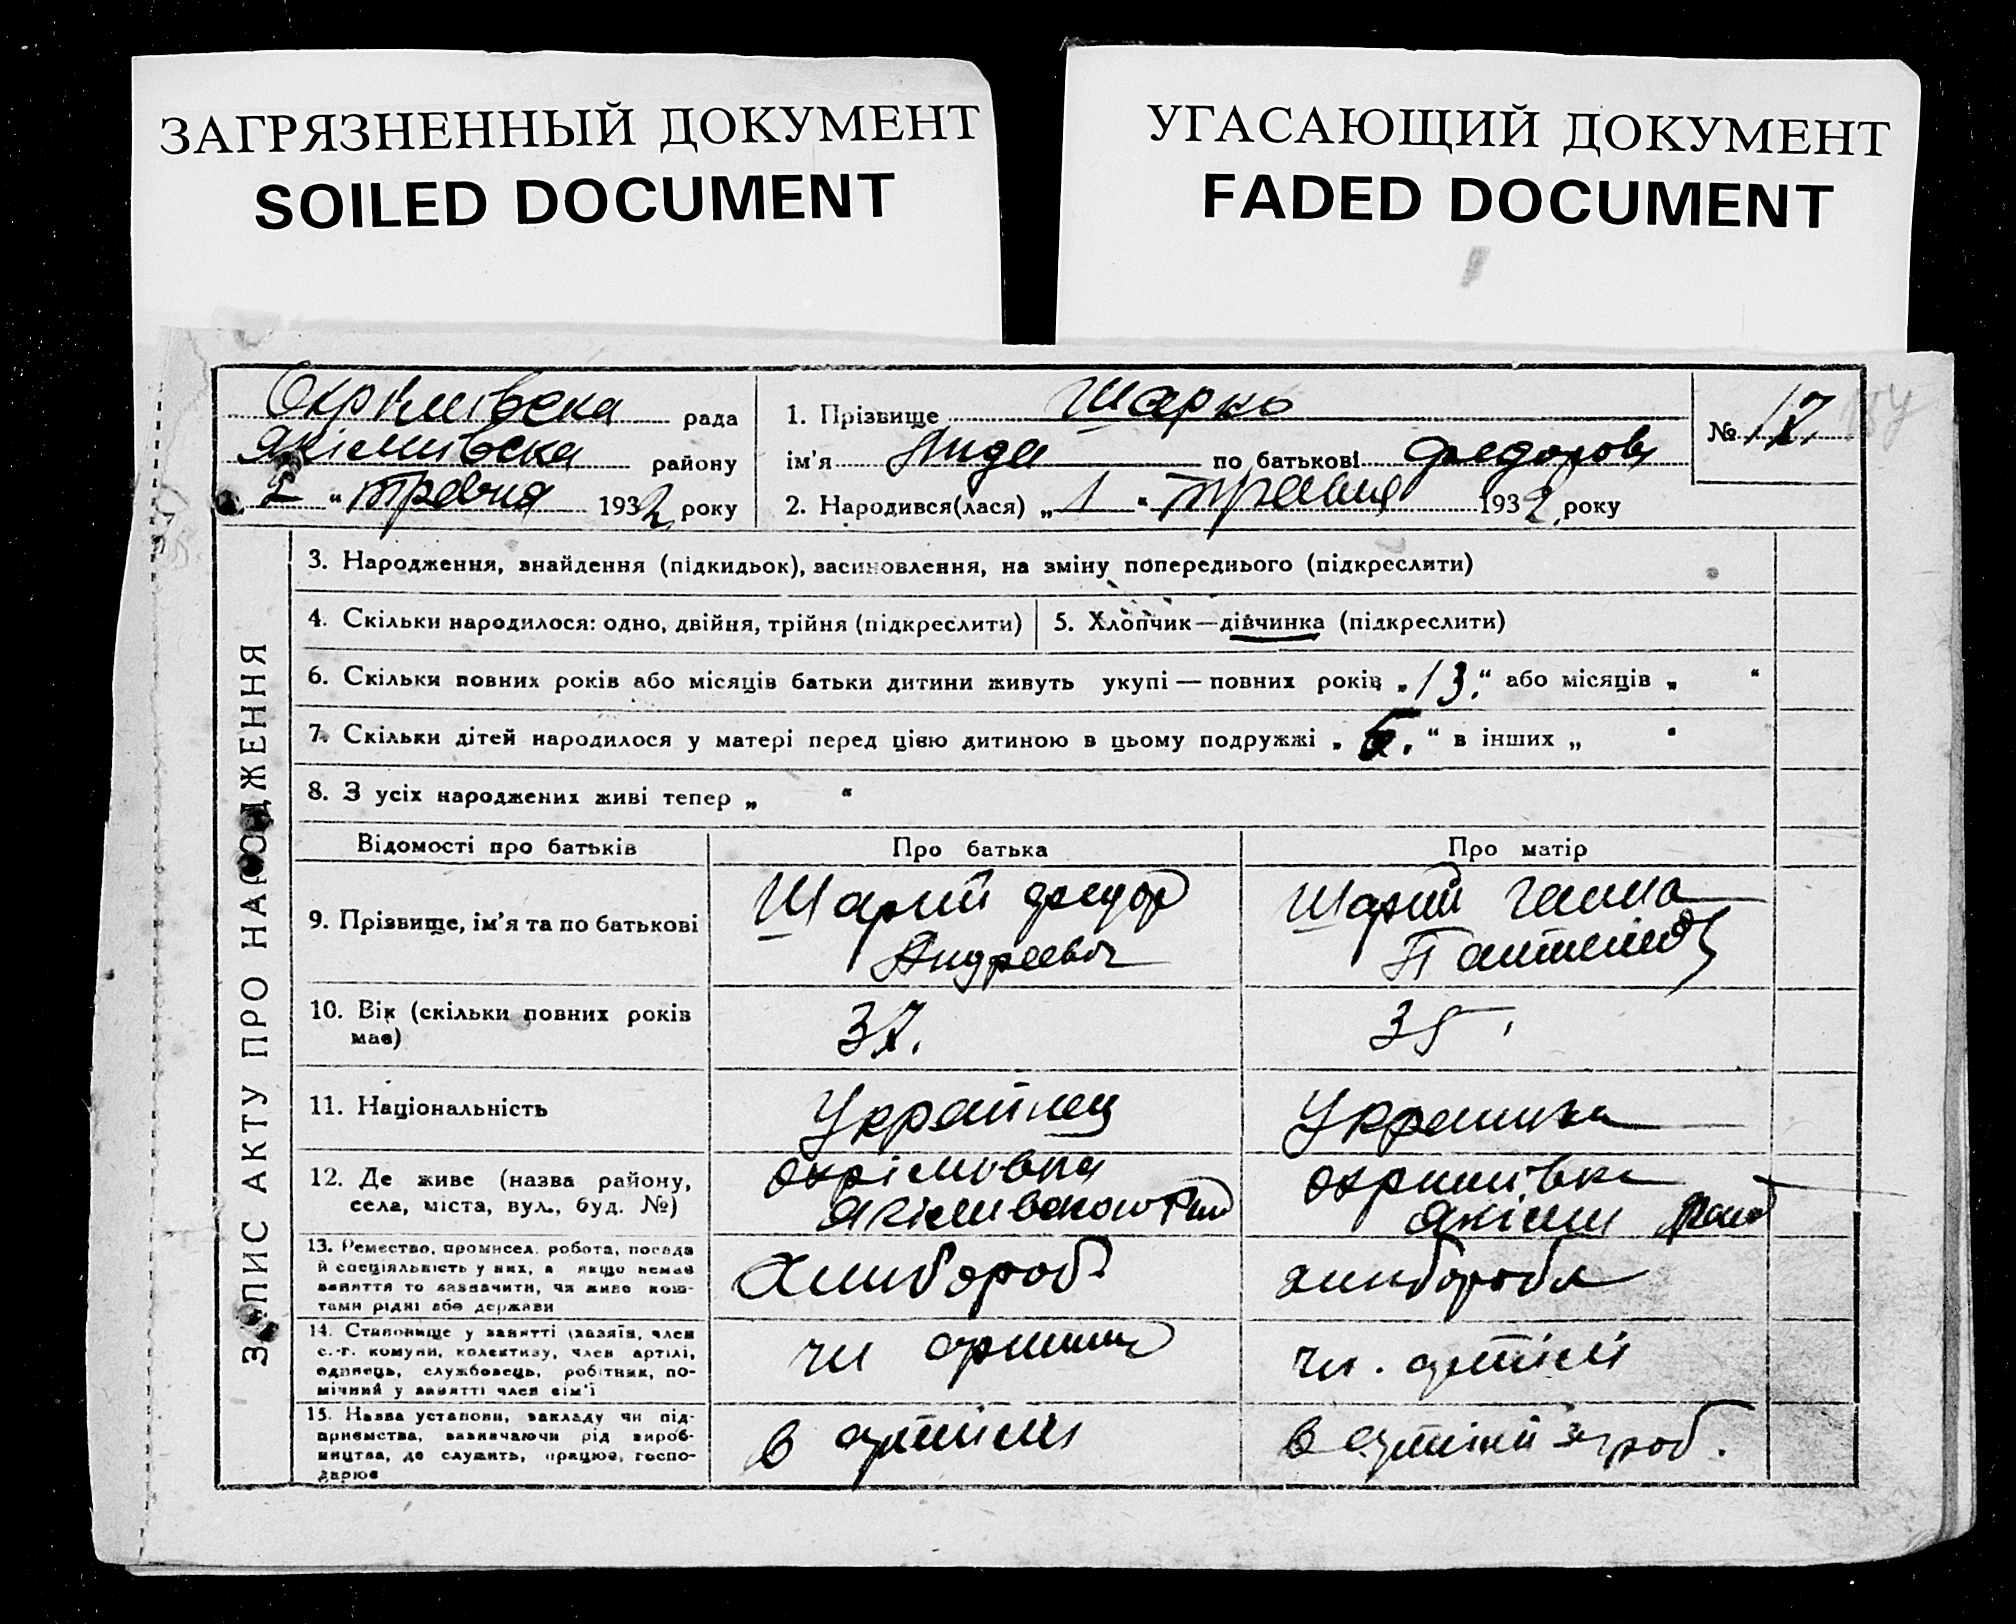 ЗАГРЯЗНЕННЫЙ ДОКУМЕНТ
SOILED DOCUMENT
УГАСАЮЩИЙ ДОКУМЕНТ
FADED DOCUMENT
Охрімівська рада
Якімивська району
2 " травня 1932 року
1. Прізвище Шарко
ім'я Лида по батькові Федоров
2. Народився(лася) „ 1 " травня 1932 року
№ 17.
ЗАПИС АКТУ ПРО НАРОДЖЕННЯ
3. Народження, знайдення (підкидьок), засиновлення, на зміну попереднього (підкреслити)
4. Скільки народилося: одно, двійня, трійня (підкреслити)
5. Хлопчик—дівчинка (підкреслити)
6. Скільки повних років або місяців батьки дитини живуть укупі — повних років „13." або місяців „ "
7. Скільки дітей народилося у матері перед цією дитиною в цьому подружжі „ . " в інших „ "
8. З усіх народжених живі тепер „ "
Відомості про батьків
Про батька
Про матір
9. Прізвище, ім'я та по батькові
Шарий Федор
Андреевич
Шарий Ганна
10. Вік (скільки повних років
має)
37.
35.
11. Національність
Украйнец
Украинка
12. Де живе (назва району,
села, міста, вул., буд. №)
Охрімовка
Охримівка
Якіми
13. Ремество, промисел, робота, посада
й спеціяльність у них, а якщо немає
заняття то зазначити, чи живе кош-
тами рідні або держави
Хлибороб
хлибороб
14. Становище у занятті (хазяїн, член
с.-г. комуни, колективу, член артілі,
одинець, службовець, робітник, по-
мічний у занятті член сім'ї
чл артили
чл. артілі
15. Назва установи, закладу чи під-
приємства, зазначаючи рід вироб-
ництва, де служить, працює, госпо-
дарює
в артили
в артілі